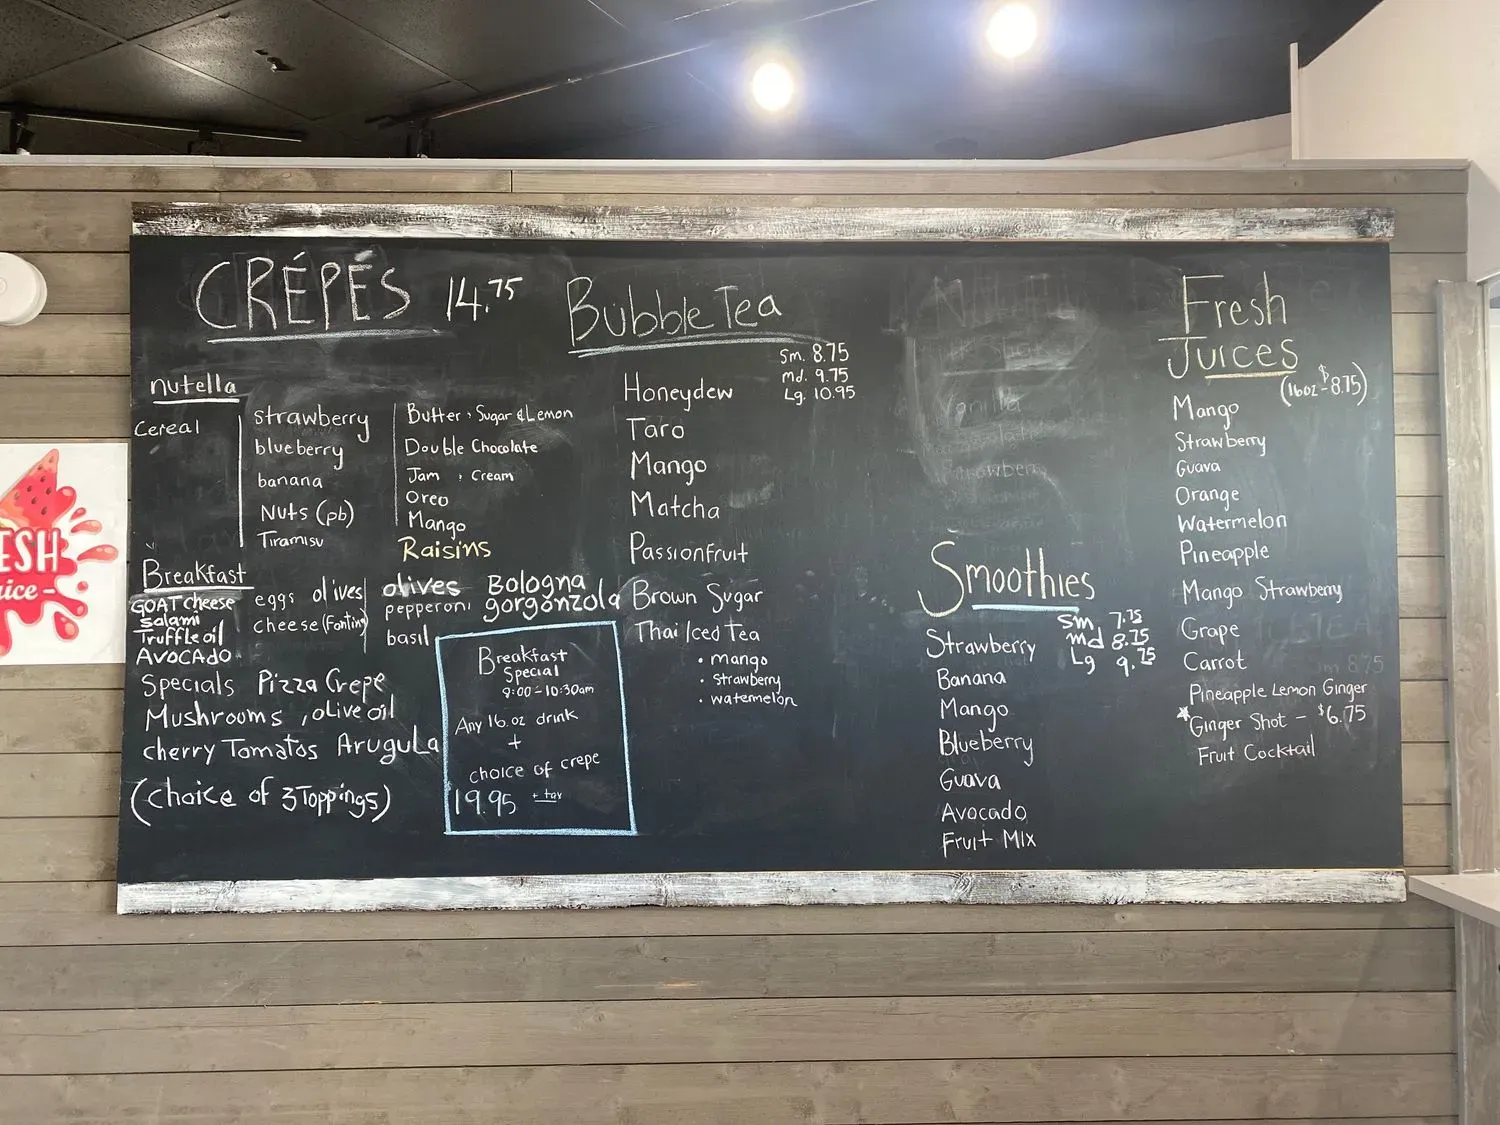 CRÉPÉS 14.75
nutella
cereal
strawberry
blueberry
banana
Nuts (pb)
Tiramisu
Butter, Sugar & Lemon
Double Chocolate
Jam , Cream
Oreo
Mango
Raisins
Breakfast
GOAT cheese
Salami
Truffle oil
AVOCADO
eggs olives
cheese (Fontina)
olives
pepperoni
basil
Bologna
gorgonzola
Specials Pizza Crepe
Mushrooms , olive oil
cherry Tomatos Arugula
(choice of 3 Toppings)
Breakfast
Special
9:00 - 10:30am
Any 16.oz drink
+
choice of crepe
19.95 + tax
Bubble Tea
Sm. 8.75
Md. 9.75
Lg. 10.95
Honeydew
Taro
Mango
Matcha
Passionfruit
Brown Sugar
Thai Iced Tea
• mango
• strawberry
• watermelon
Vanilla
Strawberry
Smoothies
Sm 7.75
md 8.75
Lg 9.75
Strawberry
Banana
Mango
Blueberry
Guava
Avocado
Fruit Mix
Fresh
Juices
(16oz - $8.75)
Mango
Strawberry
Guava
Orange
Watermelon
Pineapple
Mango Strawberry
Grape
Carrot
Pineapple Lemon Ginger
*Ginger Shot - $6.75
Fruit Cocktail
ESH
uice -